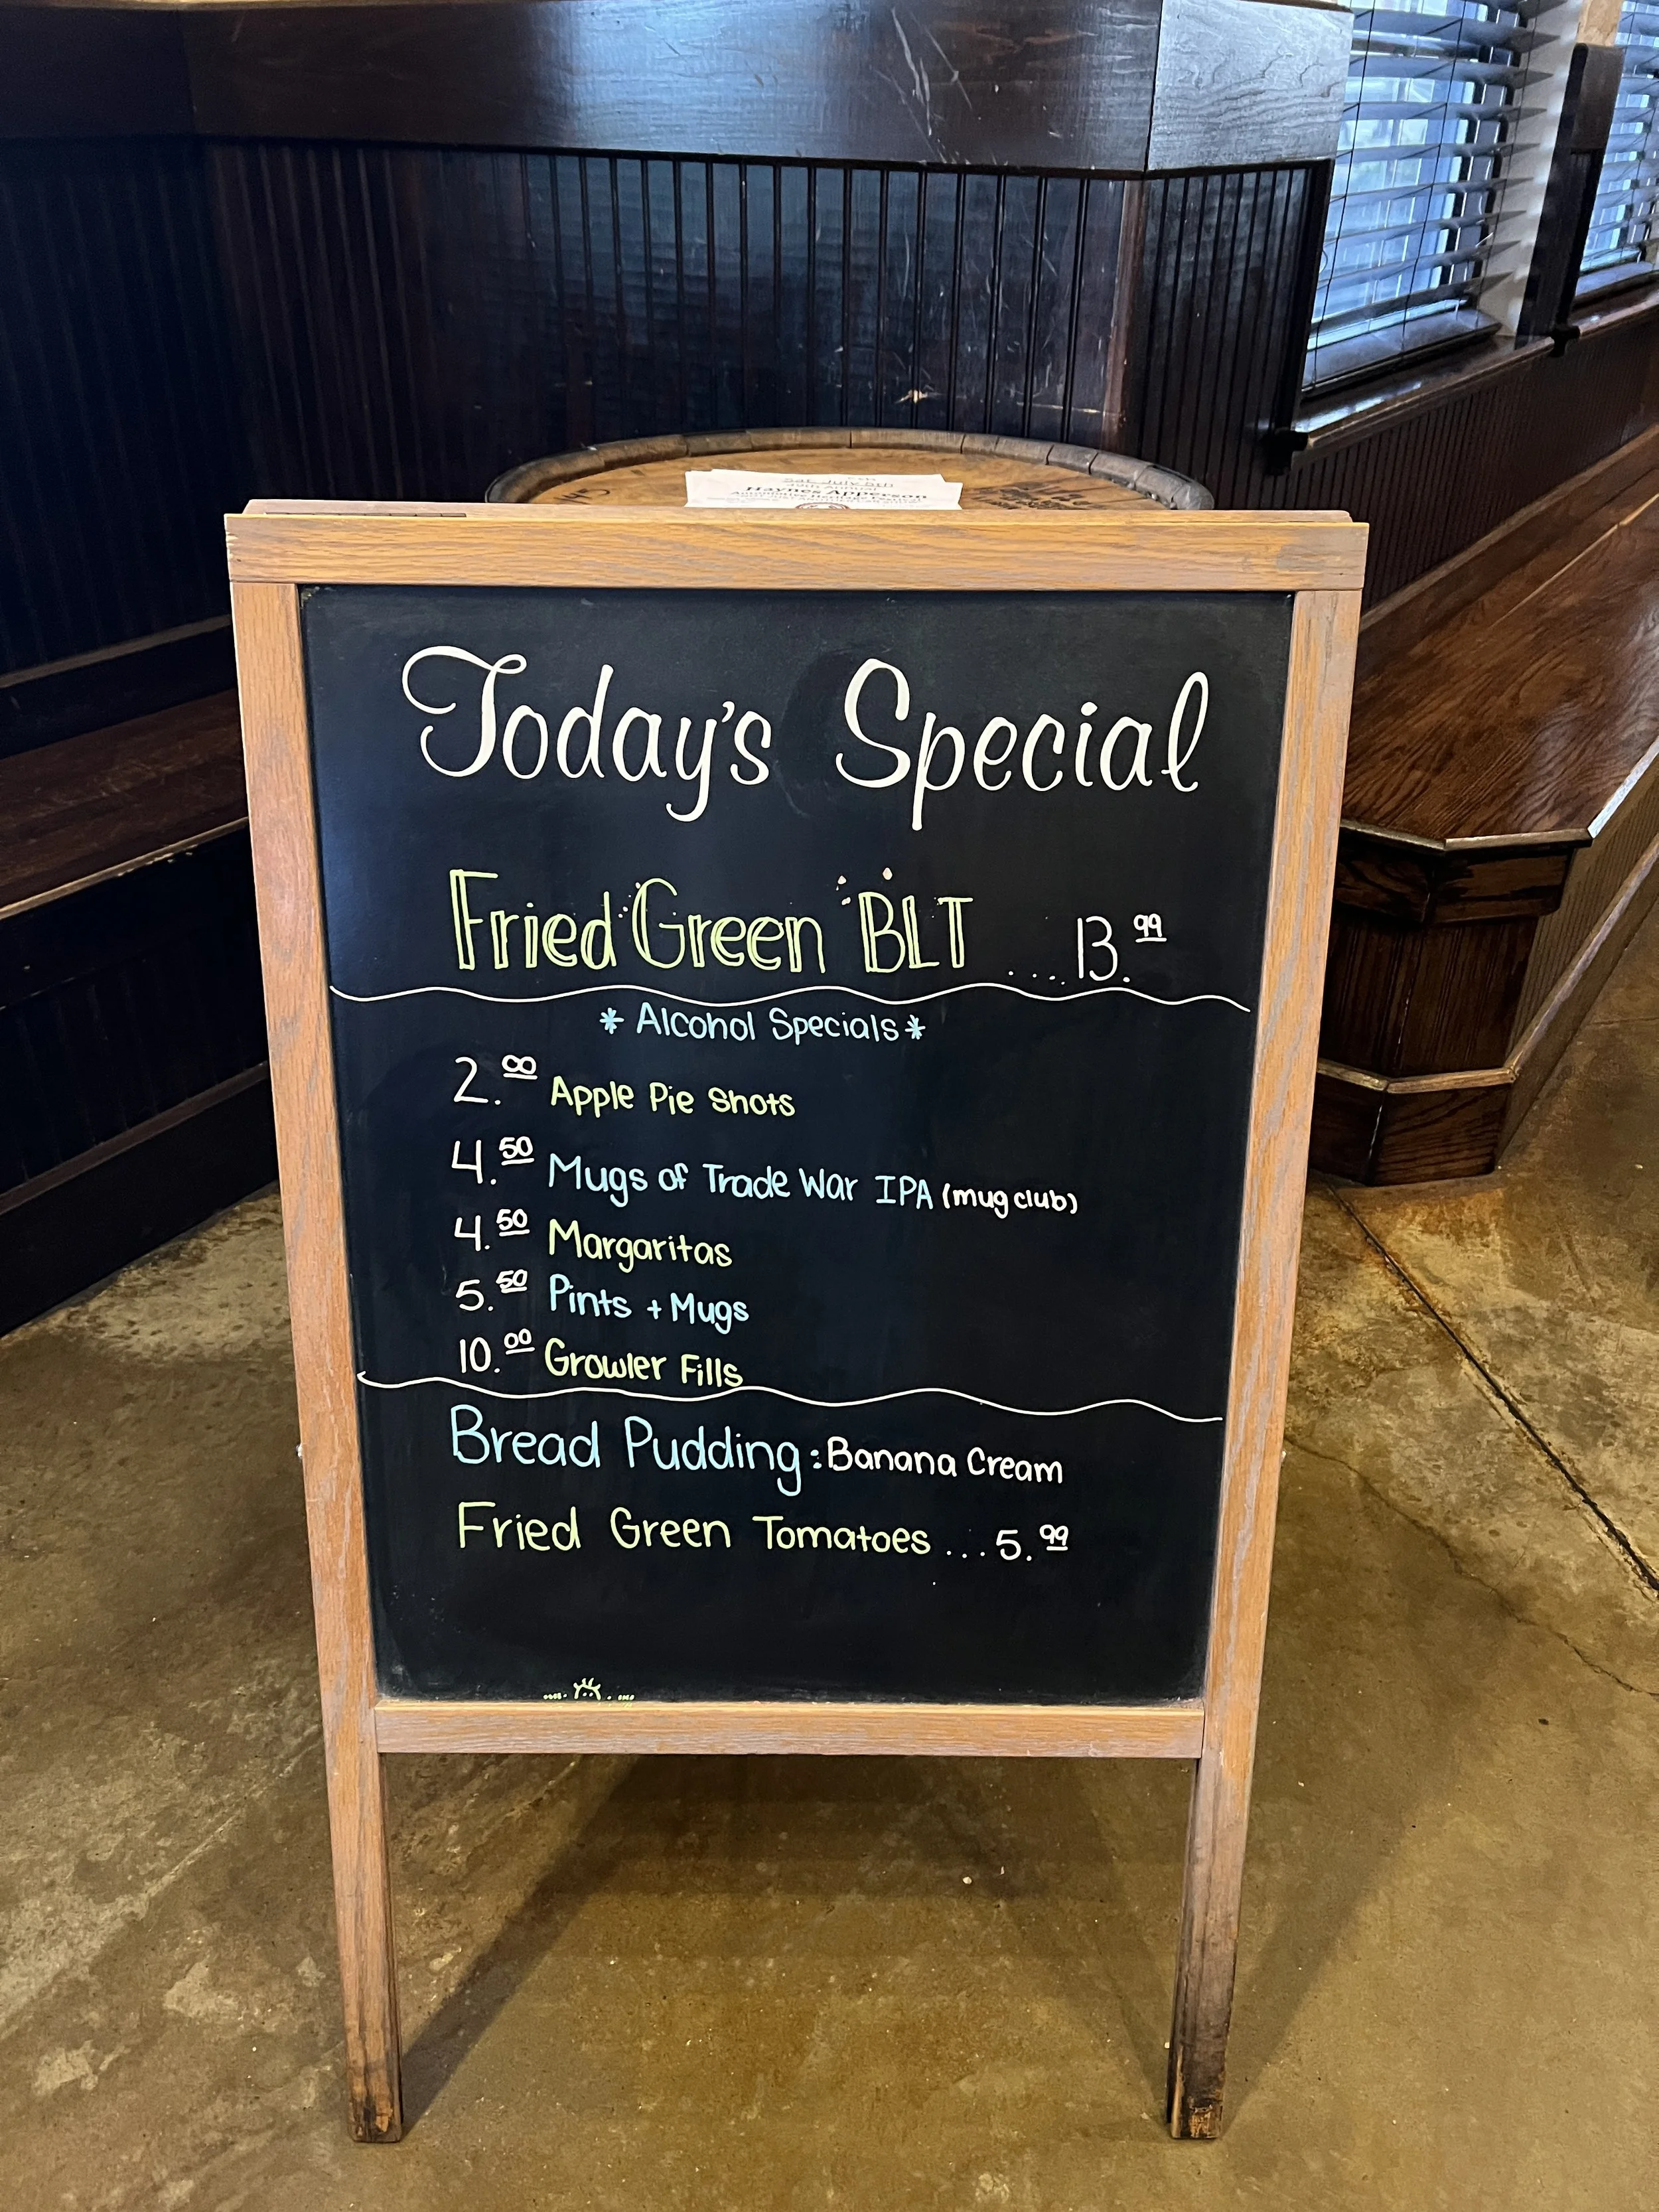 Sat. July 5th
Annual
Haynes Apperson
Today's Special
Fried Green BLT ....13.99
* Alcohol Specials *
2.00 Apple Pie Shots
4.50 Mugs of Trade War IPA (mug club)
4.50 Margaritas
5.50 Pints + Mugs
10.00 Growler Fills
Bread Pudding: Banana Cream
Fried Green Tomatoes ...5.99